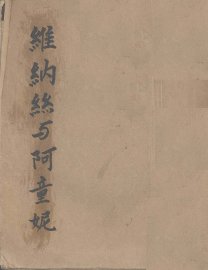 維納絲与阿童妮